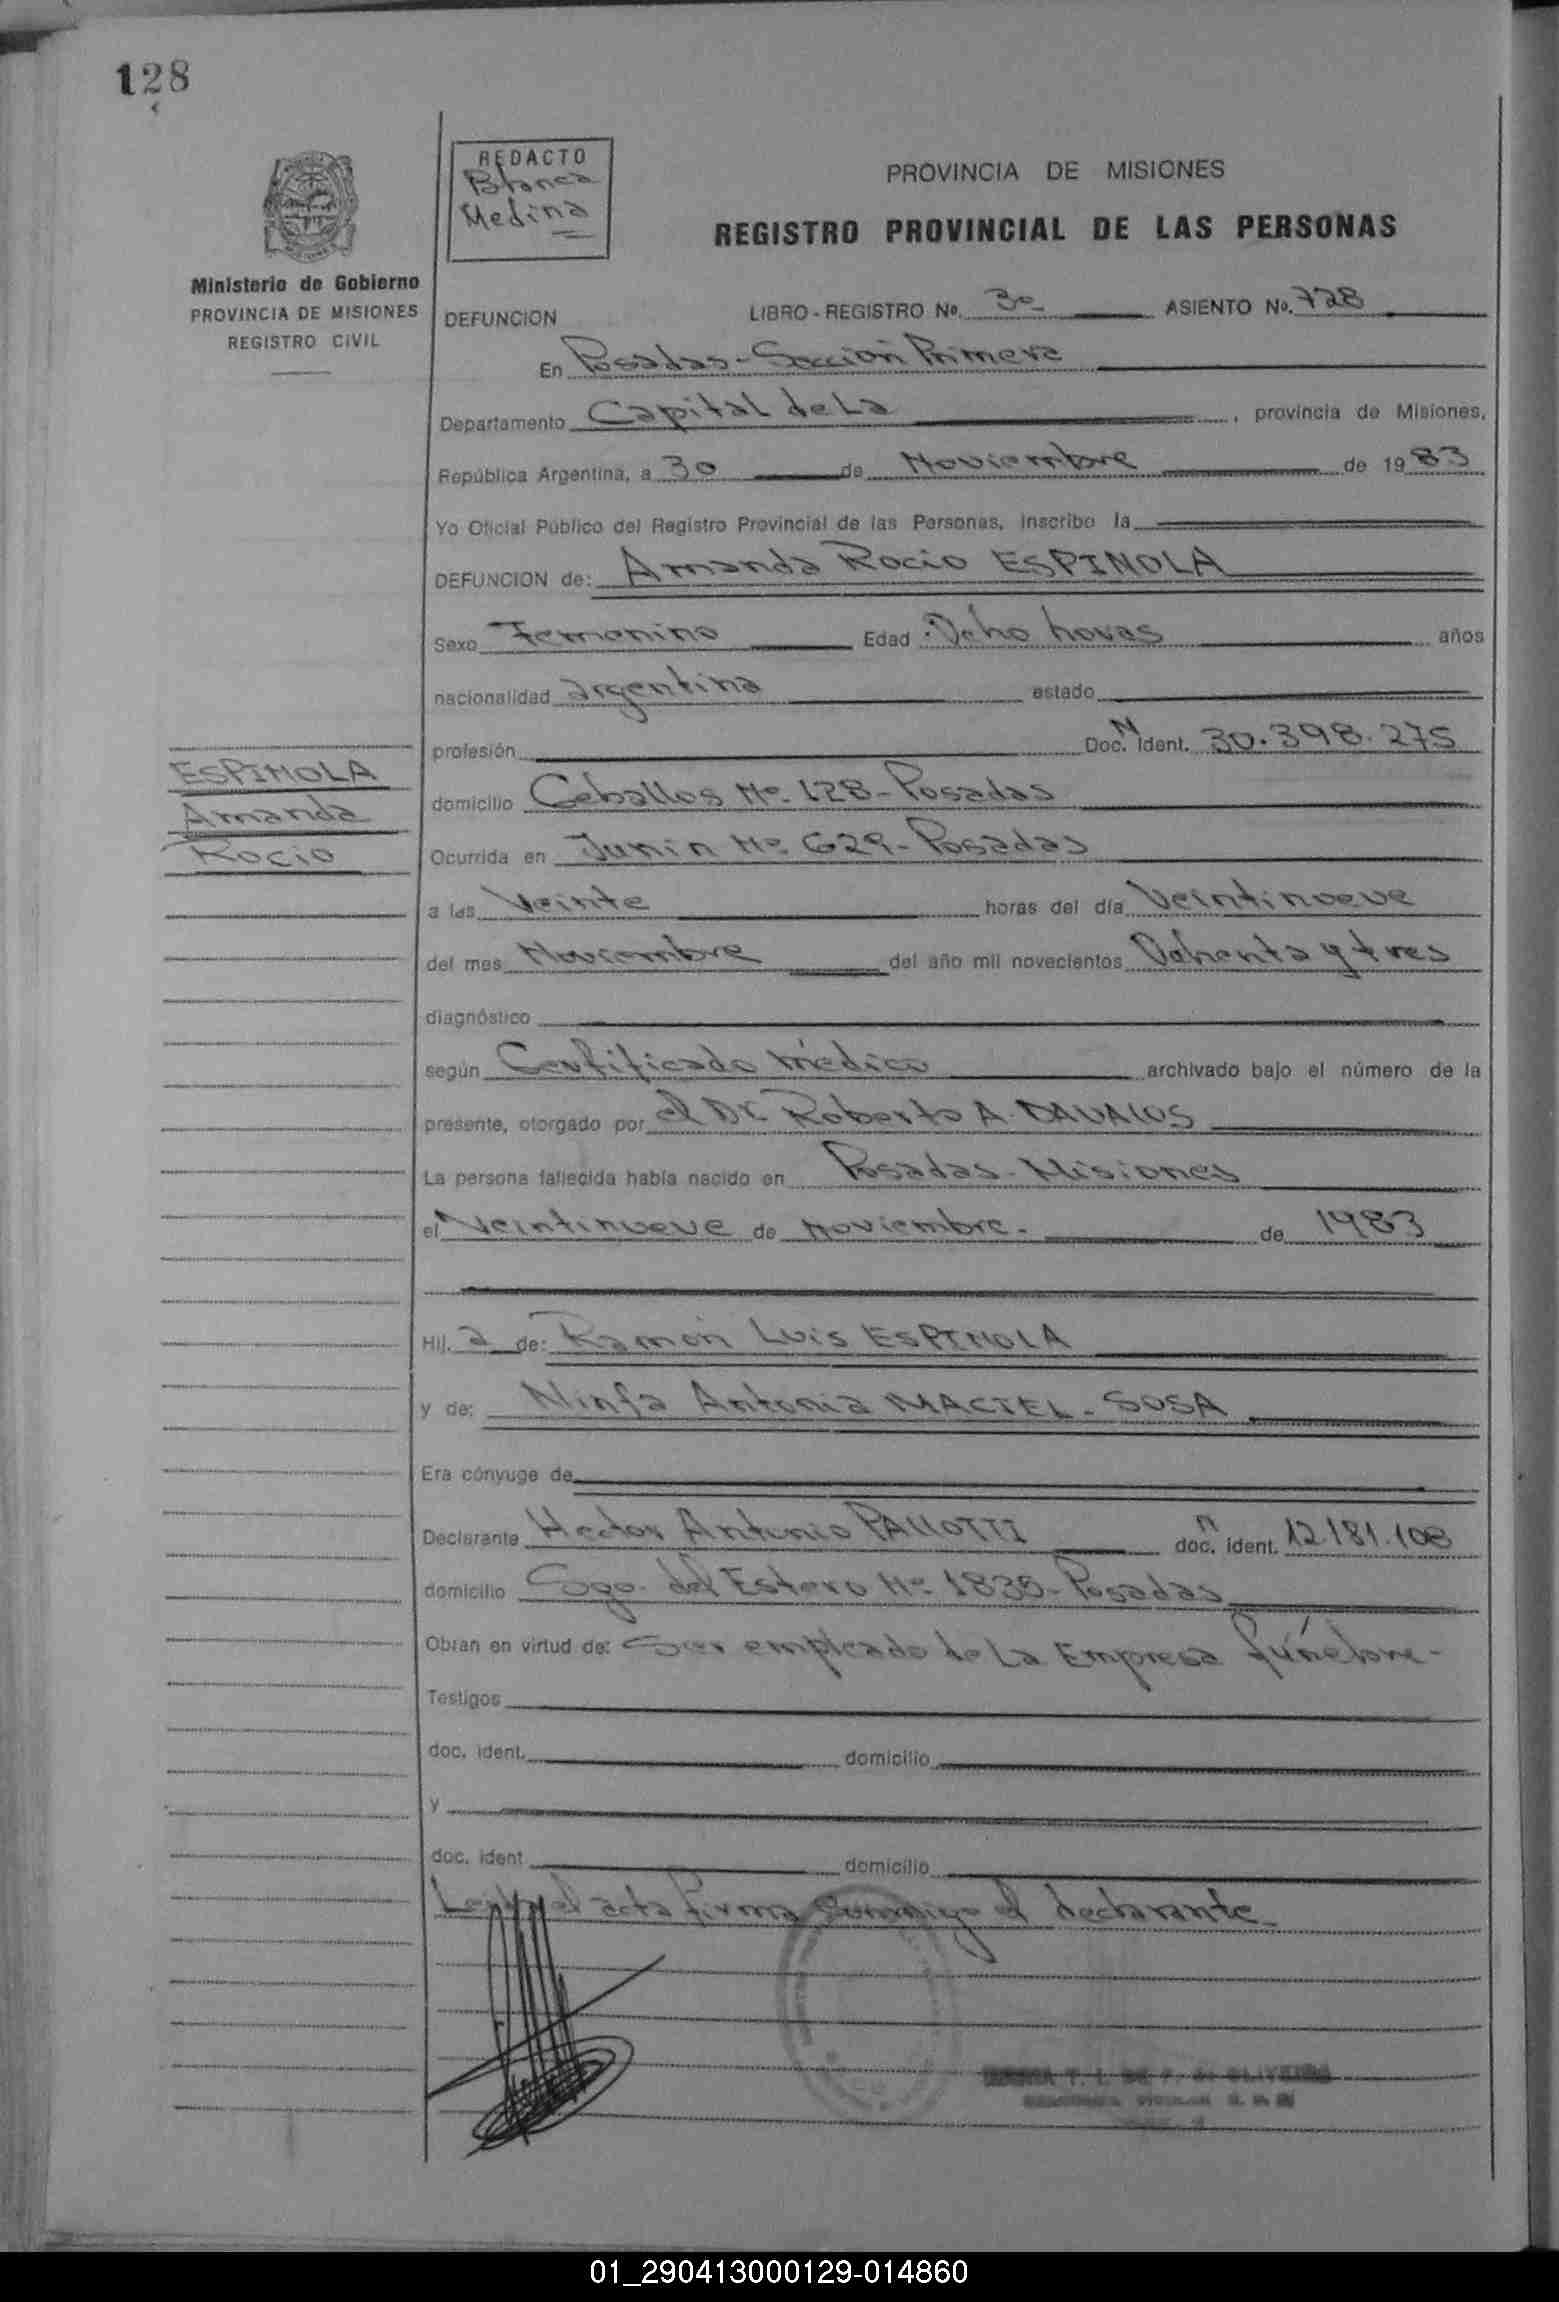 128
REDACTO
Blanca
Medina
PROVINCIA DE MISIONES
REGISTRO PROVINCIAL DE LAS PERSONAS
Ministerio de Gobierno
PROVINCIA DE MISIONES
REGISTRO CIVIL
DEFUNCION LIBRO - REGISTRO No. 3º ASIENTO No. 728
En Posadas - Sección Primera
Departamento Capital de La , provincia de Misiones,
República Argentina, a 30 de Noviembre de 1983
Yo Oficial Público del Registro Provincial de las Personas, inscribo la
DEFUNCION de: Amanda Rocio ESPINOLA
Sexo Femenino Edad Ocho horas años
nacionalidad argentina estado
profesión Doc. N Ident. 30.398.275
ESPINOLA
Amanda
Rocio
domicilio Ceballos Nº 128 - Posadas
Ocurrida en Junin Nº 629 - Posadas
a las Veinte horas del día Veintinueve
del mes Noviembre del año mil novecientos Ochenta y tres
diagnóstico
según Certificado médico archivado bajo el número de la
presente, otorgado por el Dr. Roberto A. DAVALOS
La persona fallecida había nacido en Posadas - Misiones
el Veintinueve de Noviembre. de 1983
Hij. a de: Ramón Luis ESPINOLA
y de: Ninfa Antonia MACIEL - SOSA
Era cónyuge de
Declarante Hector Antonio PALLOTTI doc. n ident. 12.181.108
domicilio Sgo. del Estero Nº 1835 - Posadas
Obran en virtud de: Ser empleado de La Empresa fúnebre -
Testigos
doc. ident. domicilio
y
doc. ident domicilio
Leída el acta firma conmigo el declarante
OLIVEIRA
01_290413000129-014860